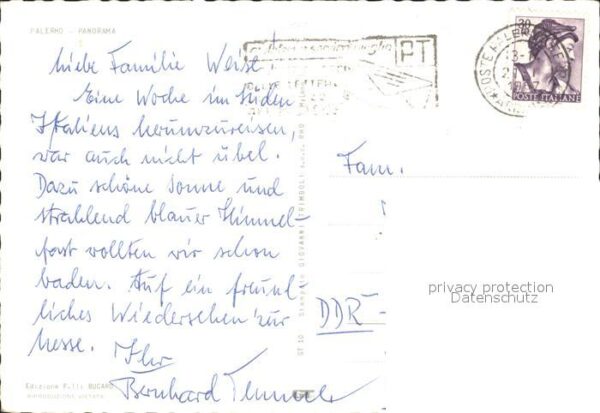 PALERMO - PANORAMA
Liebe Familie Weise!
Eine Woche im Süden
Italiens herumzureisen,
war auch nicht übel.
Dazu schöne Sonne und
strahlend blauer Himmel -
fast wollten wir schon
baden. Auf ein freund-
liches Wiedersehen zur
Messe. Ihr
Bernhard
Edizione F.lli
PT
30
POSTE ITALIANE
Fam.
DDR -
GIOVANNI TRIMBOLI
privacy protection
Datenschutz